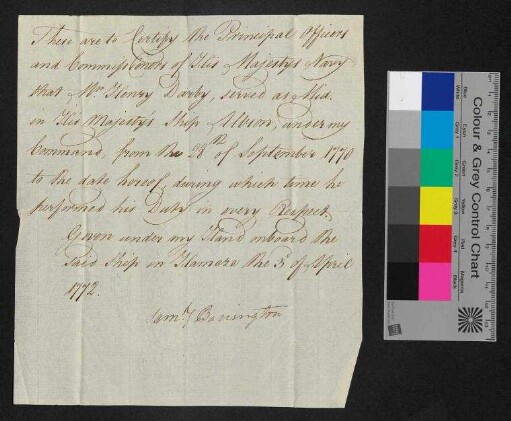 These are to Certify the Principal Officers
and Commissioners of His Majestys Navy
that Mr Henry Darby, served as Mid.
in His Majestys Ship Albion, under my
Command, from the 28th of September 1770
to the date hereof, during which time he
performed his Duty in every Respect.
Given under my Hand onboard the
Said Ship in Hamoaze the 3d of April
1772.
Saml. Barrington
Colour & Grey Control Chart
Blue
Cyan
Green
Yellow
Red
Magenta
White
Grey 1
Grey 2
Grey 3
Grey 4
Black